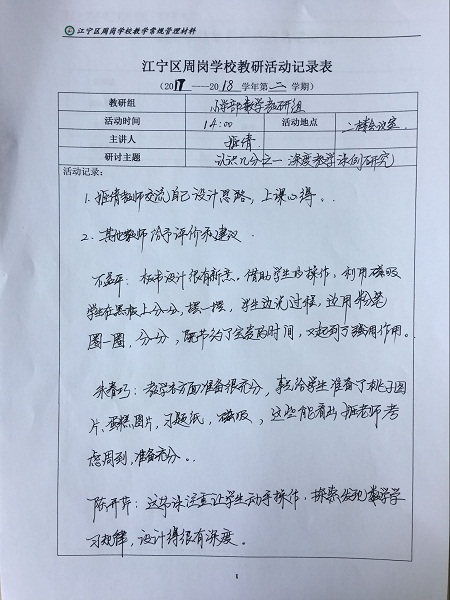 江宁区周岗学校教学常规管理材料
江宁区周岗学校教研活动记录表
(2017——2018学年第二学期)
教研组 小学部数学教研组
活动时间 14:00 活动地点 二楼会议室
主讲人 倩
研讨主题 认识几分之一 深度教学课例研究
活动记录:
1. 倩教师交流自己设计思路、上课心得。
2. 其他教师给予评价和建议
平: 板书设计很有新意。借助学生的操作, 利用磁吸
学生在黑板上分一分, 摆一摆, 学生边说过程, 边用粉笔
圈一圈, 分一分, 既节约了宝贵的时间, 又起到了强调作用。
朱春巧: 教学具方面准备很充分, 事先给学生准备了桃子图
片、蛋糕图片, 习题纸, 磁吸, 这些能看出 老师考
虑周到, 准备充分。
陈开萍: 这节课注重让学生动手操作, 探索发现数学学
习规律, 设计得很有深度。
1